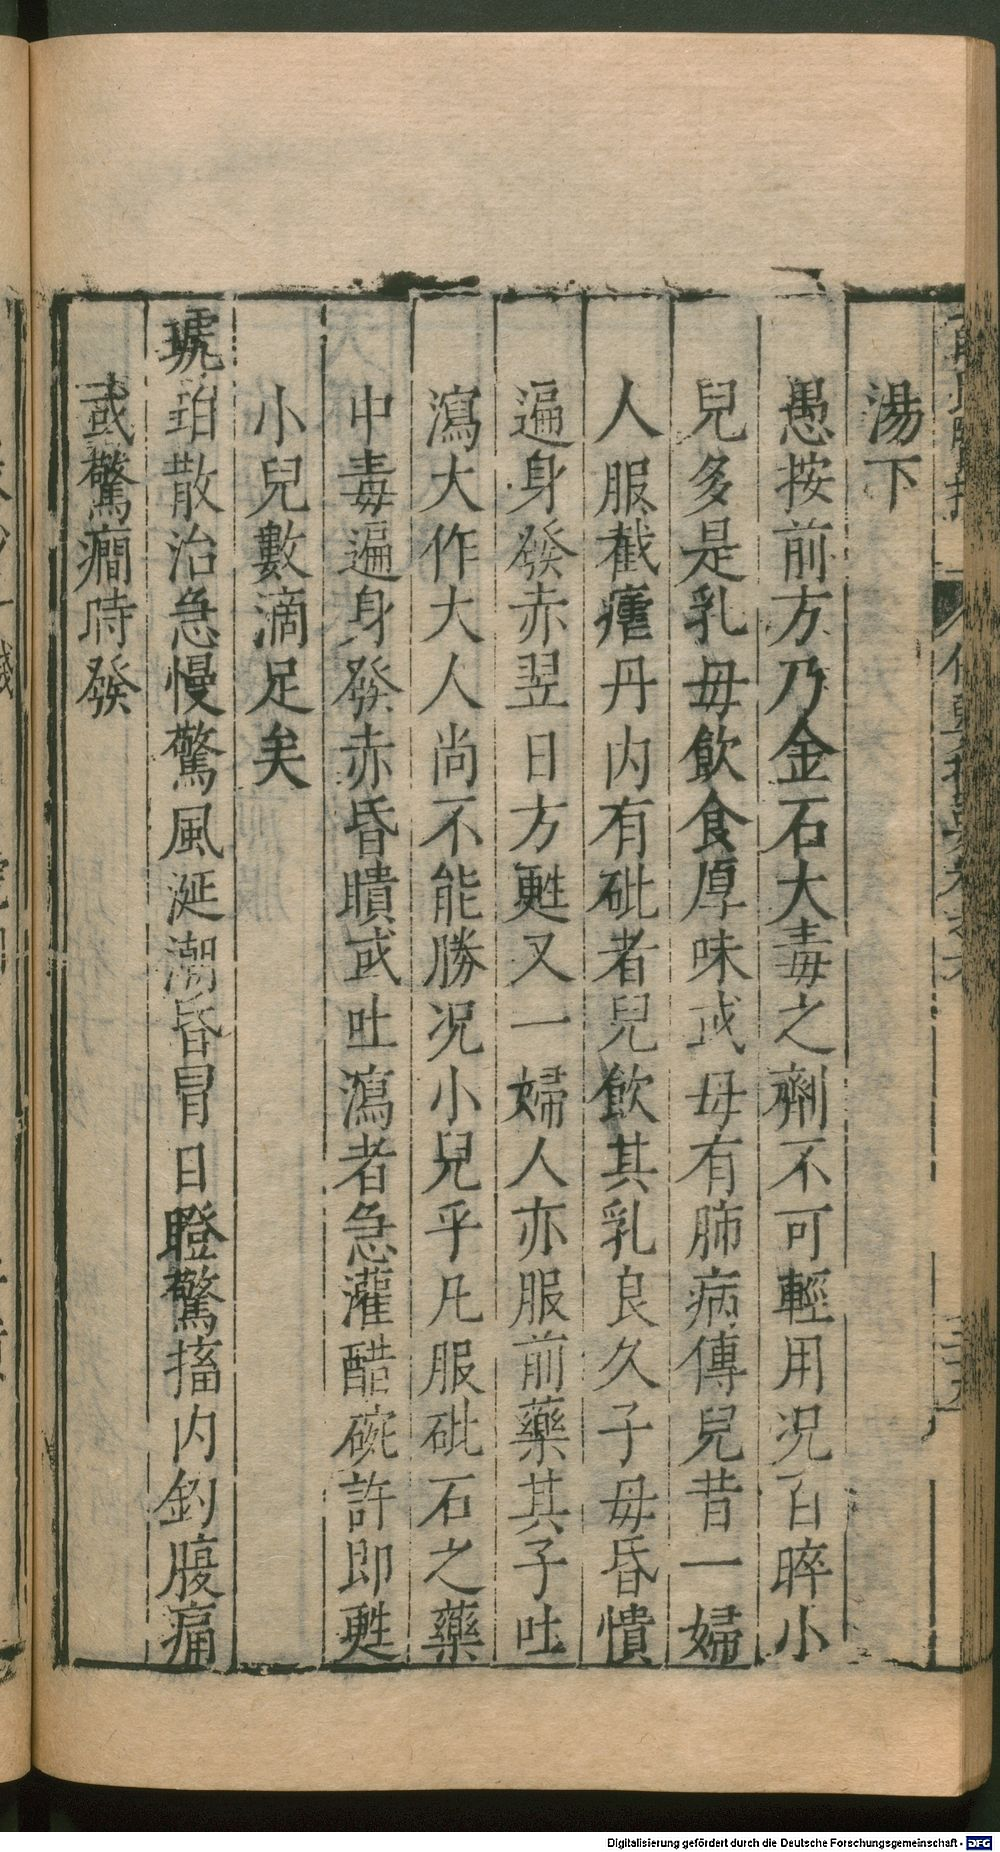 湯下
愚按前方乃金石大毒之劑不可輕用况百晬小
兒多是乳毋飲食厚味或母有肺病傳兒昔一婦
人服截瘧丹内有砒者兒飲其乳良久子毋昏憒
遍身發赤翌日方甦又一婦人亦服前藥其子吐
瀉大作大人尚不能勝况小兒乎凡服砒石之藥
中毒遍身發赤昏瞶或吐瀉者急灌醋碗許即甦
小兒數滴足矣
琥珀散治急慢驚風涎潮昏冒日瞪驚搐内釣腹痛
或驚癇時發
Digitalisierung gefördert durch die Deutsche Forschungsgemeinschaft - DFG